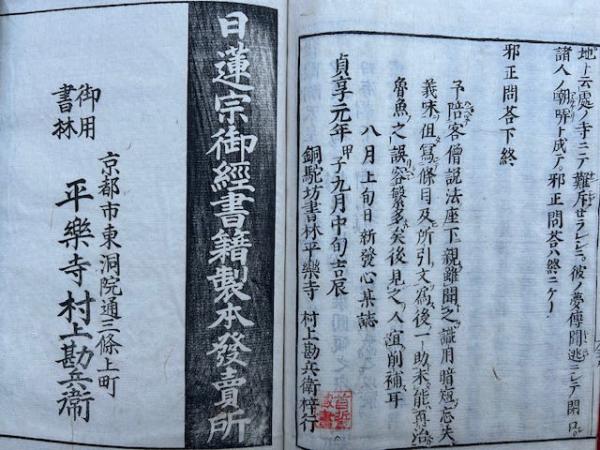 地ト云處ノ寺ニテ難斥せラレシニ。彼ノ夢傳聞逃シテ閉口。
諸人ノ嘲哢ト成ア邪正問荅ハ終ニケリ
邪正問荅下終
予陪客僧說法座下親雖聞之識用暗短忘失
義味但寫條目及所引文為後一助未能眞治
魯魚之誤容繁多矣後見之人宜削補耳
八月上旬日新發心某誌
貞享元年甲子九月中旬吉辰
銅駝坊書林平樂寺 村上勘兵衛梓行
日蓮宗御經書籍製本發賣所
御用
書林
京都市東洞院通三條上町
平樂寺 村上勘兵衛